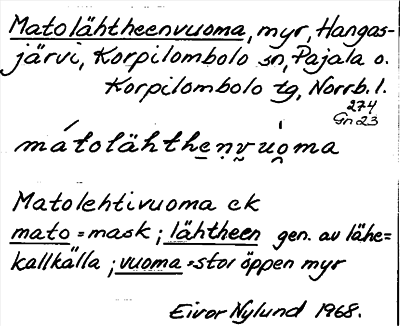 Matolähtheenvuoma, myr, Hangas-
järvi, Korpilombolo sn, Pajala o.
Korpilombolo tg, Norrb. l.
274
Gn 23
mátolähthe̱ṇv̮u̯o̯ma
Matolehtivuoma ek
mato = mask ; lähtheen gen. av lähe=
kallkälla ; vuoma =stor öppen myr
Eivor Nylund 1968.